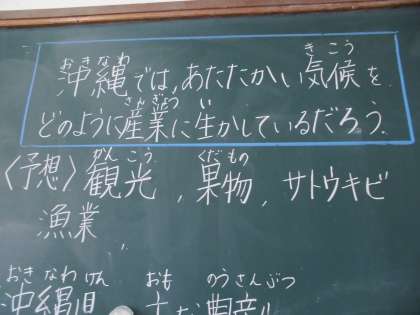 おきなわ きこう
沖縄では、あたたかい気候を
さんぎょう い
どのように産業に生かしているだろう。
かんこう くだもの
〈予想〉観光、果物、サトウキビ
漁業、
おきなわけん おも のうさんぶつ
沖縄県 主な農産